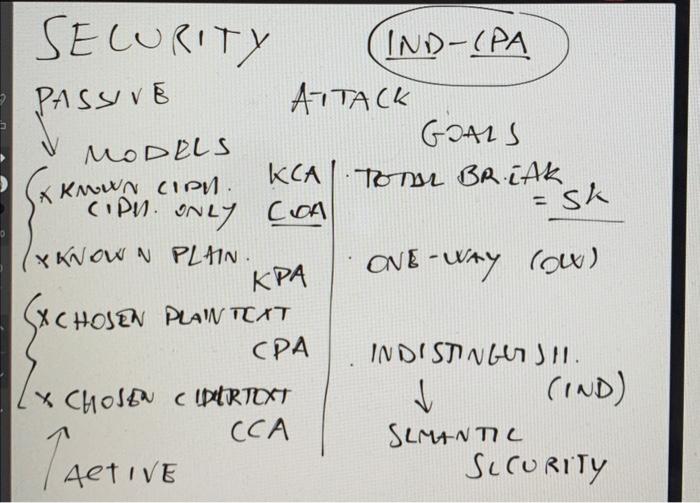 SECURITY
IND-CPA
PASSIVE
ATTACK
GOALS
MODELS
x KNOWN CIPH. KCA
CIPH. ONLY COA
x KNOWN PLAIN.
KPA
x CHOSEN PLAINTEXT
CPA
x CHOSEN CIPHERTEXT
CCA
ACTIVE
· TOTAL BREAK
= SK
· ONE-WAY (OW)
· INDISTINGUISH.
(IND)
SEMANTIC
SECURITY